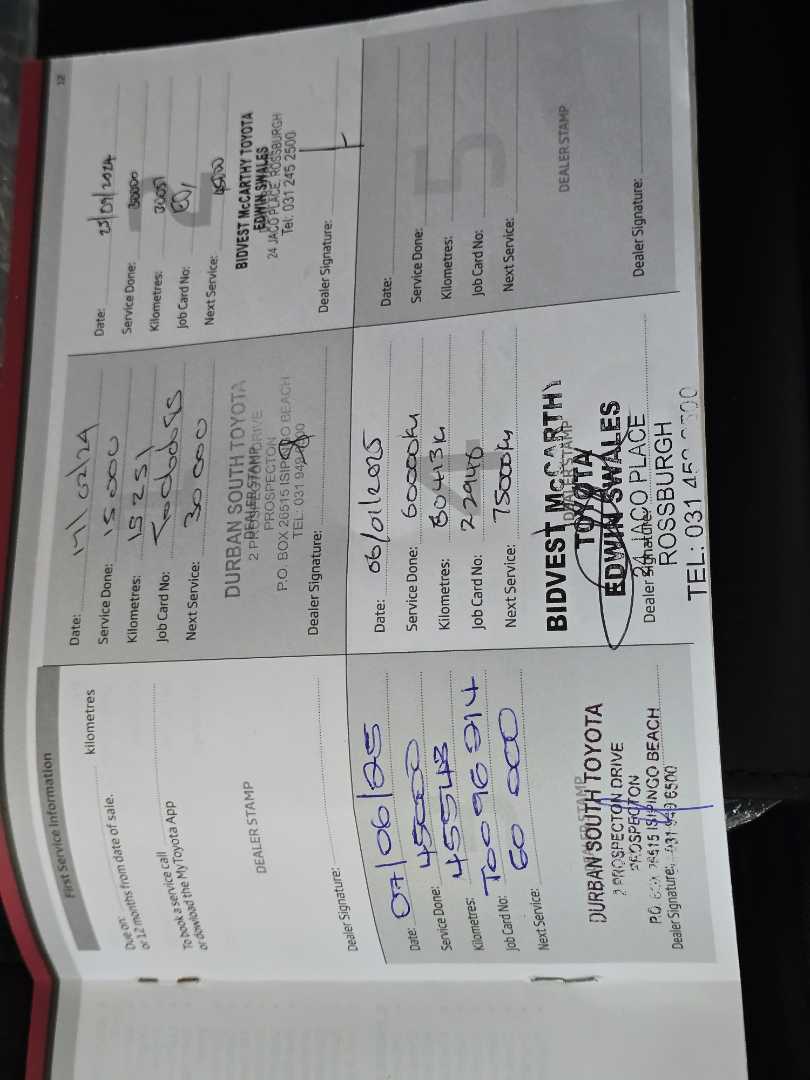 First Service Information
Due on: kilometres
or 12 months from date of sale.
To book a service call
or dowload the MyToyota App
DEALER STAMP
Dealer Signature:
Date:
Service Done: 15 000
Kilometres: 15251
Job Card No:
Next Service: 30 000
DURBAN SOUTH TOYOTA
DEALER STAMP
2 PROSPECTON DRIVE
PROSPECTON
P.O. BOX 26515 ISIPINGO BEACH
TEL: 031 949
Dealer Signature:
12
Date: 23/09/2024
Service Done: 30000
Kilometres: 30051
Job Card No:
Next Service: 45000
2
BIDVEST McCARTHY TOYOTA
EDWIN SWALES
24 JACO PLACE, ROSSBURGH
Tel: 031 245 2500
Dealer Signature:
Date: 07/06/25
Service Done: 45000
Kilometres: 45543
Job Card No: T0096214
Next Service: 60 000
DEALER STAMP
DURBAN SOUTH TOYOTA
2 PROSPECTON DRIVE
PROSPECTON
P.O. BOX 26515 ISIPINGO BEACH
Dealer Signature: 031 949 6500
Date: 06/01/2025
Service Done: 60000km
Kilometres: 60413k
Job Card No: 22946
Next Service: 75000km
4
BIDVEST McCARTHY
DEALER STAMP
TOYOTA
EDWIN SWALES
24 JACO PLACE
Dealer Signature:
ROSSBURGH
TEL: 031 45
Date:
Service Done:
Kilometres:
Job Card No:
Next Service:
5
DEALER STAMP
Dealer Signature: